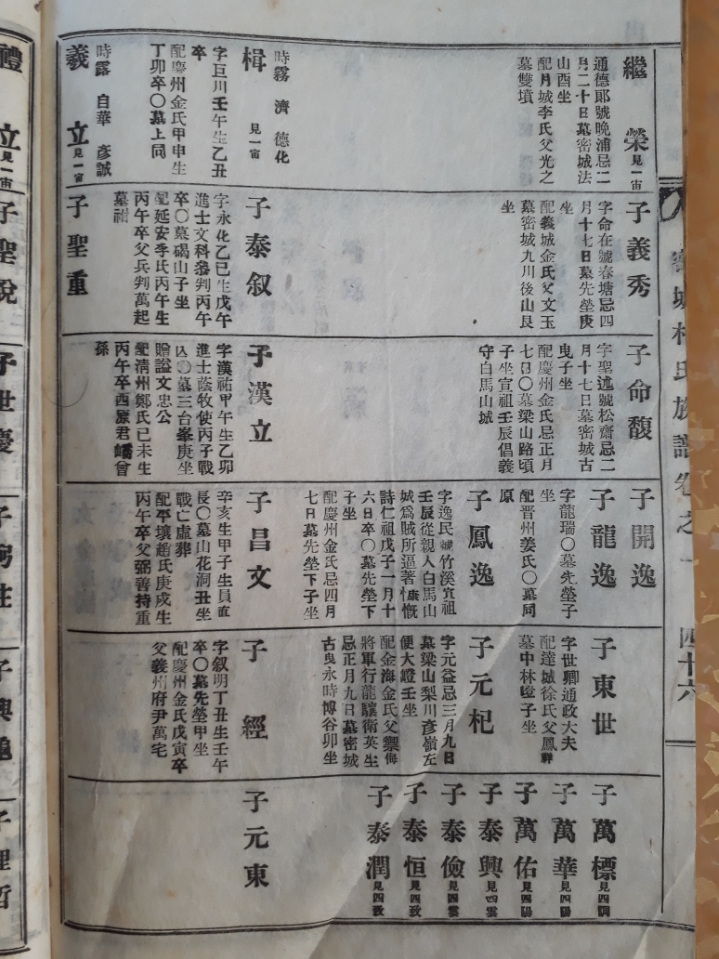 繼榮 見一宙
通德郞號晚浦忌二
月二十日墓密城法
山酉坐
配月城李氏父光之
墓雙墳
楫 見一宙
時霧 濟 德化
字巨川壬午生乙丑
卒
配慶州金氏甲申生
丁卯卒〇墓上同
義立 見一宙
時露 自華 彦誠
子義秀
字命在號春塘忌四
月十七日墓先塋庚
坐
配義城金氏父文玉
墓密城九川後山艮
坐
子泰叙
字永化乙巳生戊午
進士文科參判丙午
卒〇墓碣山子坐
配延安李氏丙午生
丙午卒父兵判萬起
墓祔
子聖重
子命馥
字聖述號松齋忌二
月十七日墓密城古
曳子坐
配慶州金氏忌正月
七日〇墓梁山路頃
子坐宣祖壬辰倡義
守白馬山城
子漢立
字漢祐甲午生乙卯
進士蔭牧使丙子戰
亡〇墓三台峯庚坐
贈謚文忠公
配淸州鄭氏己未生
丙午卒西原君曾
孫
子世慶
子開逸
子龍逸
字龍瑞〇墓先塋子
坐
配晋州姜氏〇墓同
原
子鳳逸
字逸民號竹溪宣祖
壬辰從親入白馬山
城爲賊所逼著慷慨
詩仁祖戊子一月十
六日卒〇墓先塋下
子坐
配慶州金氏忌四月
七日墓先塋下子坐
子昌文
辛亥生甲子生員直
長〇墓山花洞丑坐
戰亡虛葬
配平壤趙氏庚戌生
丙午卒父弼善持重
子東世
字世卿通政大夫
配達城徐氏父鳳祥
墓中林嶝子坐
子元杞
字元益忌三月九日
墓梁山梨川彦嶺左
便大嶝壬坐
配金海金氏父禦侮
將軍行龍驤衛英生
忌正月九日墓密城
古曳永時博谷卯坐
子經
字叙明丁丑生壬午
卒〇墓先塋甲坐
配慶州金氏戊寅卒
父義州府尹萬宅
子萬標
子萬華 見四陽
子萬佑 見四陽
子泰興 見四雲
子泰儉 見四雲
子泰恒 見四致
子泰潤 見四致
子元東
四十六
禮立 見一宙
子聖說